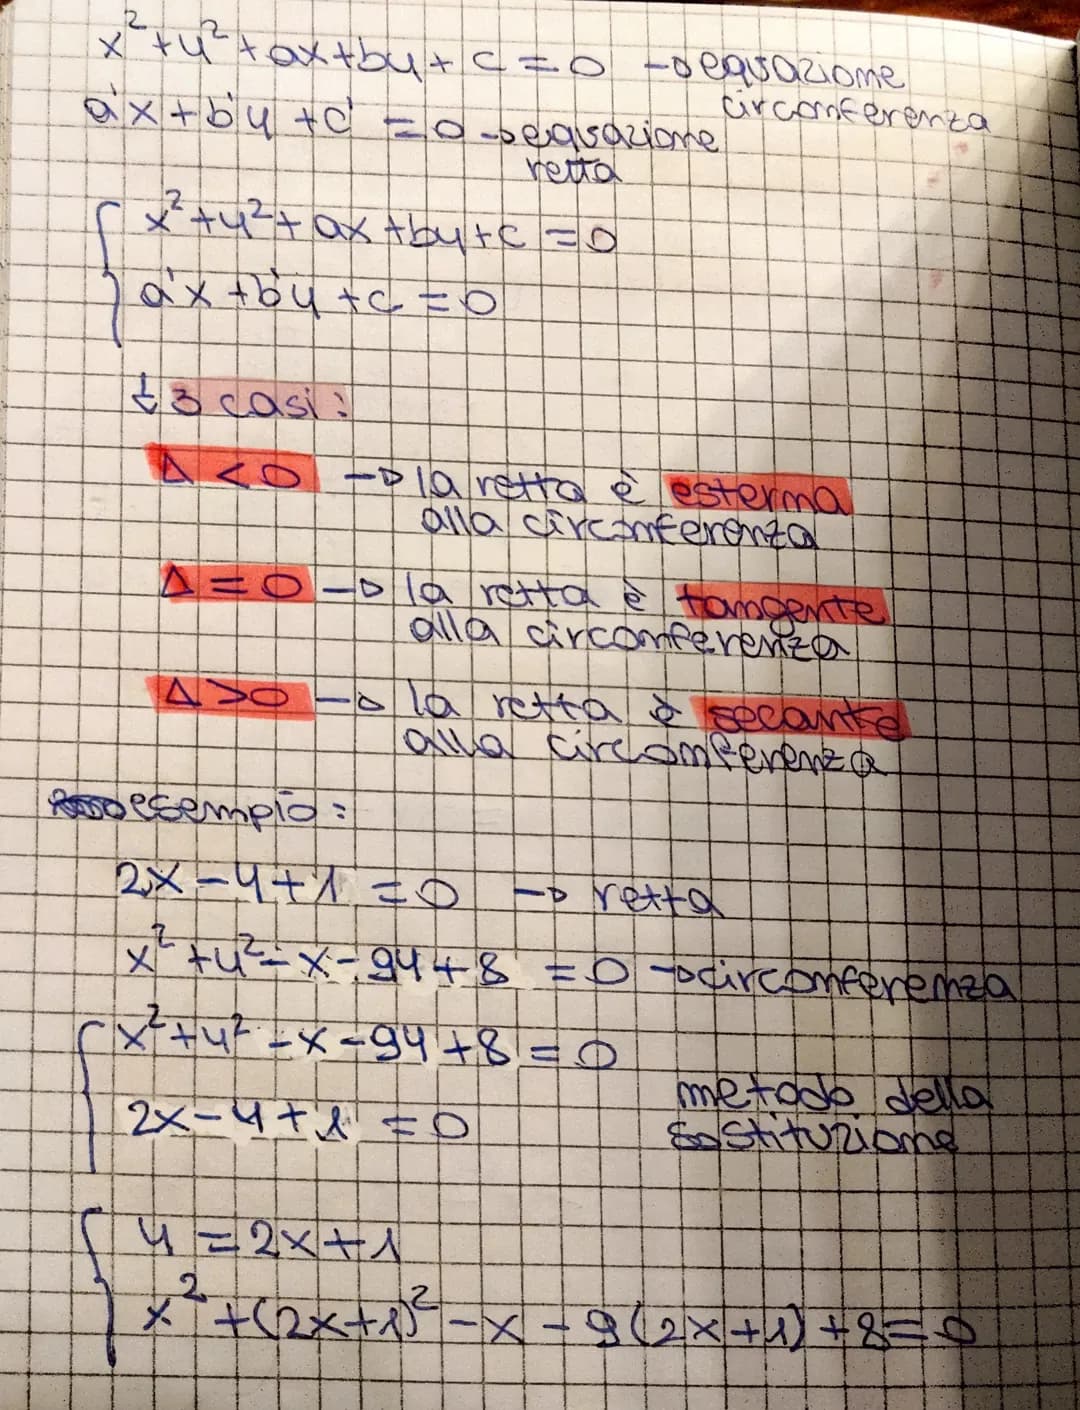 x²+y²+ax+by+c=0 → equazione
circonferenza
a'x+b'y+c'=0 → equazione
retta
x²+y²+ax+by+c=0
a'x+b'y+c=0
3 casi:
Δ<0 → la retta è esterna
alla circonferenza
Δ=0 → la retta è tangente
alla circonferenza
Δ>0 → la retta è secante
alla circonferenza
esempio:
2x-y+1=0 → retta
x²+y²-x-9y+8=0 → circonferenza
x²+y²-x-9y+8=0
2x-y+1=0
metodo della
sostituzione
y=2x+1
x²+(2x+1)²-x-9(2x+1)+8=0